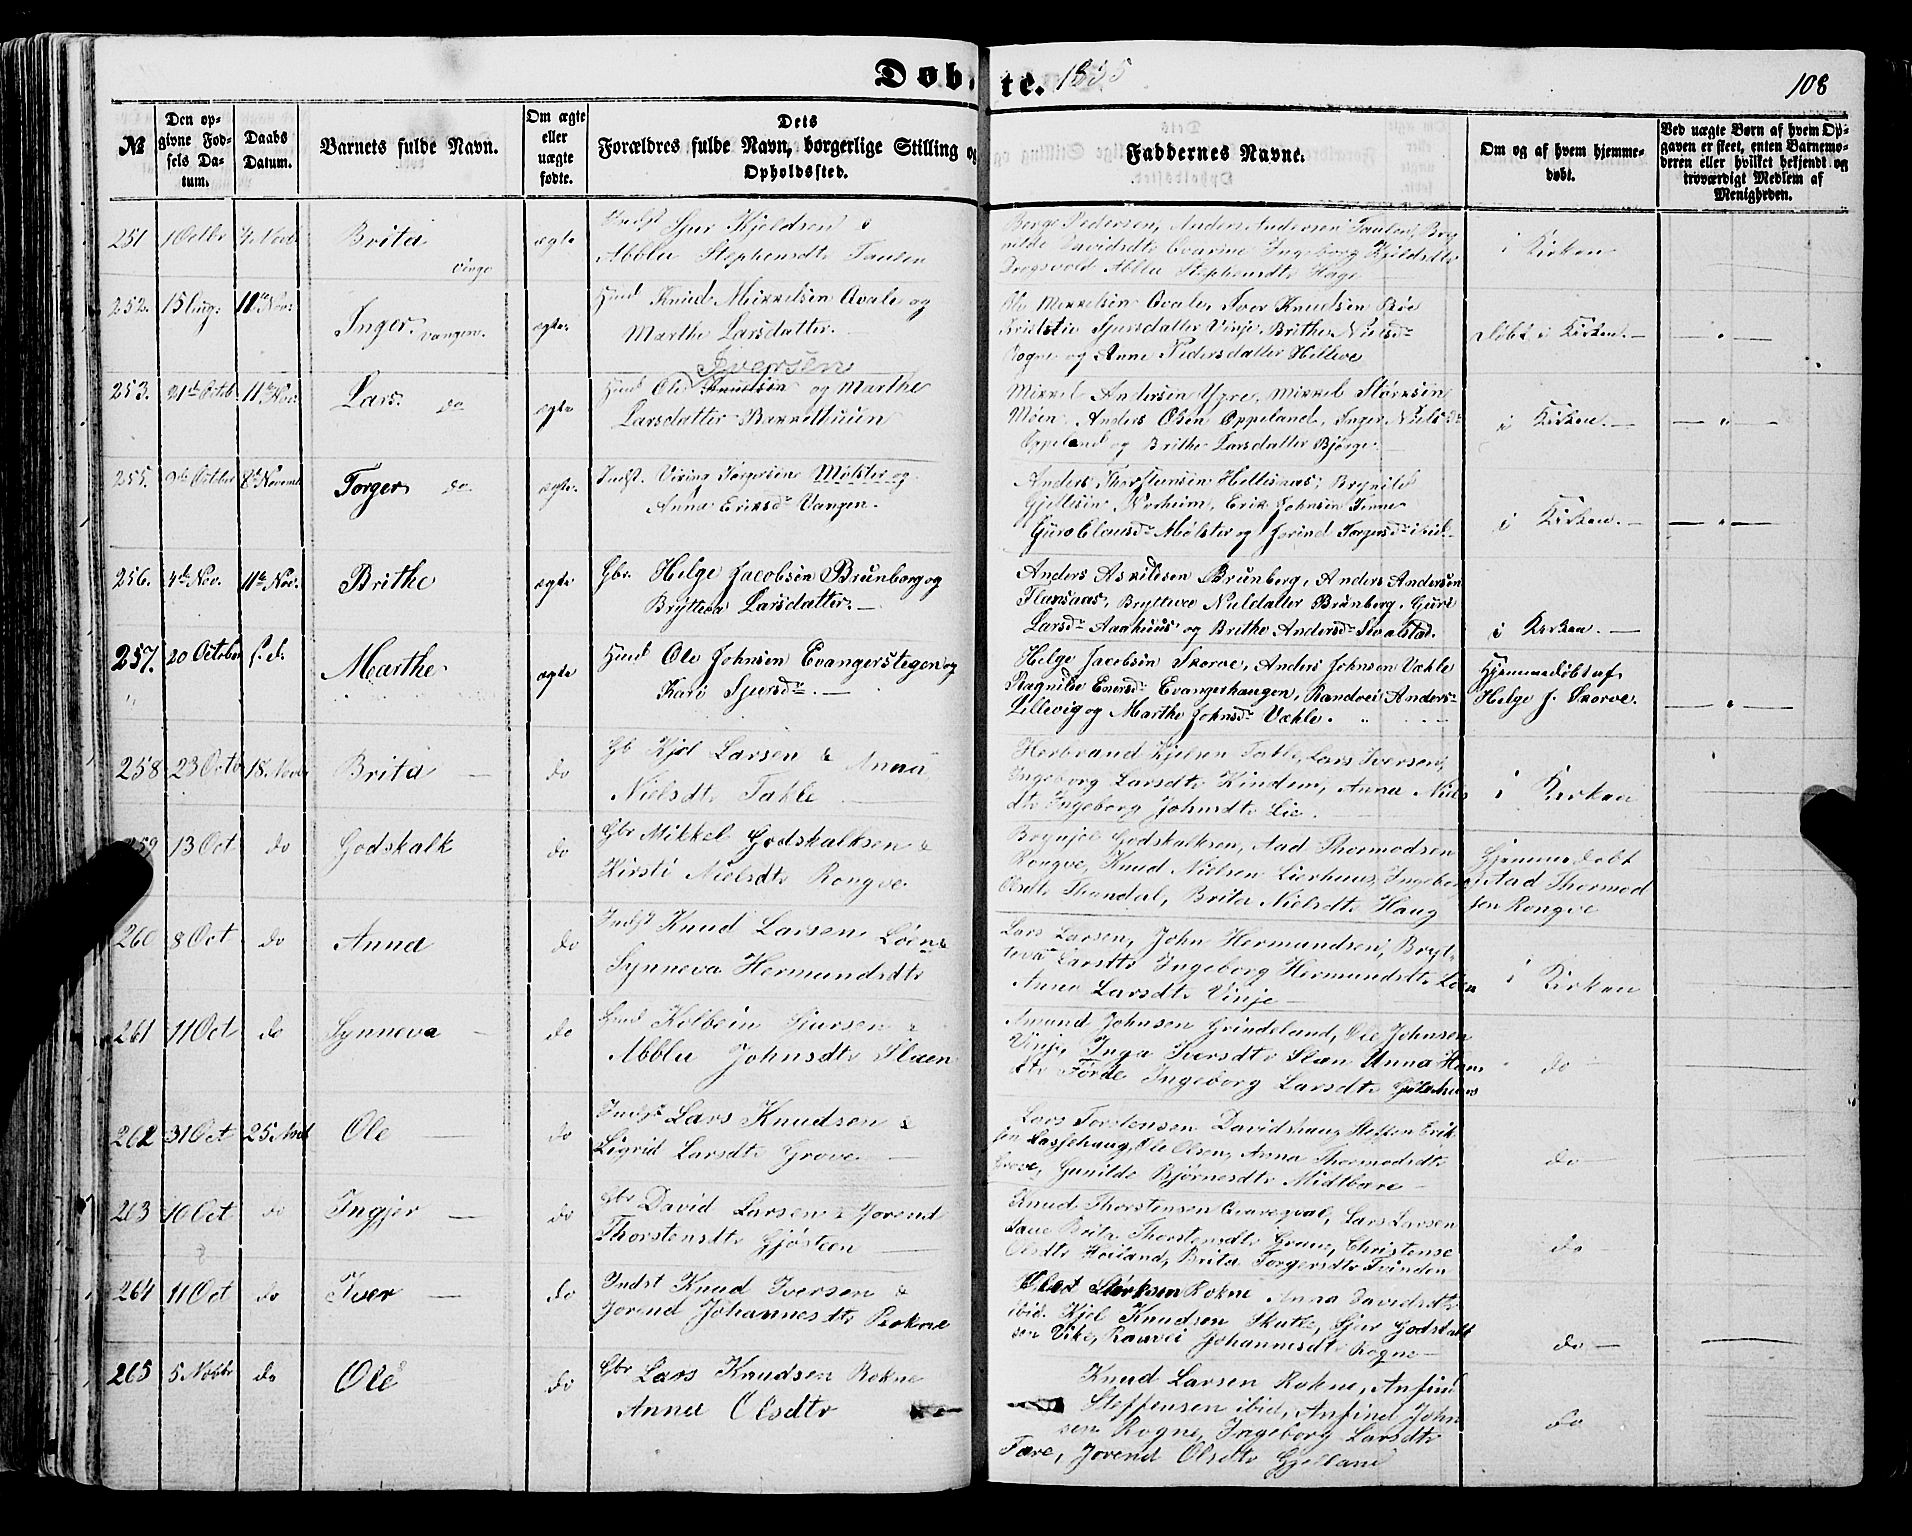 Døbte. 1855
108
№
Den opgivne Fødsels Datum.
Daabs Datum.
Barnets fulde Navn.
Om ægte eller uægte fødte.
Dets Forældres fulde Navn, borgerlige Stilling og Opholdssted.
Faddernes Navne.
Om og af hvem hjemmedøbt.
Ved uægte Børn af hvem Opgaven er skeet, enten Barnemoderen eller hvilket bekjendt og troværdigt Medlem af Menigheden.
251 1 Octbr Novb Brita ægte Sjur Kjeldsen &
Vinge Abblu Stephensdtr
Borge Pedersen, Anders Andersen
nilde Davidsdtr Ingeborg Kjeldsdtr
Abblu Stephensdtr Hage
i Kirken
252. 15 Aug: 11te Nov: Inger. Vangen. ægte. Huusmd Knud Mikkelsen Qvale og
Marthe Larsdatter.
Mikkelsen Qvale, Iver Knudsen
Sjursdatter Vinje, Brithe Nielsdr
Rogne og Anne Pedersdatter Helleve
Døbt i Kirken.
253. 21de Octob 11te Nov: Lars. do ægte Huusmd Ole Knudsen og Marthe
Iversen
Larsdatter Bakkethuun
Mikkel Andersen Ygre, Mikkel Størksen
Møen, Anders Olsen Oppeland, Inger Nielsdr
Oppeland og Brithe Larsdatter Bjørge.
i Kirken.
255. October 8de Novemb Torger do ægte. Indst. Viking Torgersen Mølster og
Anna Eriksdr Vangen.
Anders Thorstensen Hellesnaas, Brynild
Gjellesen Norheim, Erik Johnsen
Guro Clausdr Mølster og Jorind Torgersdr ibid.
i Kirken.
256. 4de Nov. 11te Nov: Brithe ægte Gbr. Helge Jacobsen Brunborg og
Brytteva Larsdatter.
Anders Askildsen Brunberg, Anders Andersen
Flansaas, Brytteve Nieldatter Brunberg, Guri
Larsdr Aakhuus og Brithe Andersdr Sivalstad.
i Kirken.
257. 20 October s. d. Marthe ægte Huusmd Ole Johnsen Evangerstegen og
Kari Sjursdr.
Helge Jacobsen Skorve, Anders Johnsen Vækle
Ragnilde Eversdr Evangerhaugen, Randvei Andersdr
Lillevig og Marthe Johnsdr Vækle.
Hjemmedøbt af
Helge J. Skorve.
258 23 Octo 18. Novbr Brita do Gb Kjel Larsen & Anna
Nielsdtr Takle
Herbrand Kjelsen Takle, Lars Iversen,
Ingeborg Larsdtr Kinden, Anna Niels
dtr Ingeborg Johnsdtr Lie
i Kirken
259 13 Oct do Godskalk do Gbr Mikkel Godskalksen &
Kirsti Nielsdtr Rongve
Brynjel Godskalksen, Aad Thormodsen
Rongve, Knud Nielsen Lierhuus, Ingeborg
Olsdtr Thundal, Brita Nielsdtr Haug
Hjemmedøbt
af Aad Thormod
sen Rongve
260 8 Oct do Anna do Indst Knud Larsen Løen &
Synneva Hermundsdtr
Lars Larsen, John Hermundsen, Bryt-
teva Larsdtr Ingeborg Hermundsdtr Løen
Anna Larsdtr Vinje
i Kirken
261 11 Oct do Synneva do Huusmd Kolbein Sjursen &
Abblu Johnsdtr Slæen
Amund Johnsen Grindeland, Ole Johnsen
Vinje Inga Iversdtr Slæn Anna Hans
dtr Førde Ingeborg Larsdtr
do
262 31 Oct 25 Novb Ole do Indst Lars Knudsen &
Sigrid Larsdtr Grove
Lars Torstensen Davidshaug Steffen Erik-
sen Lassehaug, Ole Olsen, Anna Thormodsdtr
Grove, Gunilde Bjørnesdtr Midtbære
do
263 10 Oct do Ingjer do Gbr David Larsen & Jorend
Thorstensdtr Gjøsteen
Knud Thorstensen Graveqval, Lars Larsen
Saue Brita Thorstensdtr Graue, Christense
Olsdtr Høiland, Brita Torgersdtr Tvinden
do
264 11 Oct do Iver do Indst Knud Iversen &
Jorend Johannesdtr Rokne
Størksen Rokne Anna Davidsdtr
ibid. Kjel Knudsen Skutle, Sjur Godskalk
sen Vike, Ranvei Johannesdtr Rogne
do
265 5 Novbr do Ole do Gbr Lars Knudsen Rokne
Anna Olsdtr
Knud Larsen Rokne, Anfind
Steffensen ibid, Anfind John
sen Rogne, Ingeborg Larsdtr
Tære, Jorend Olsdtr Gjelland
do